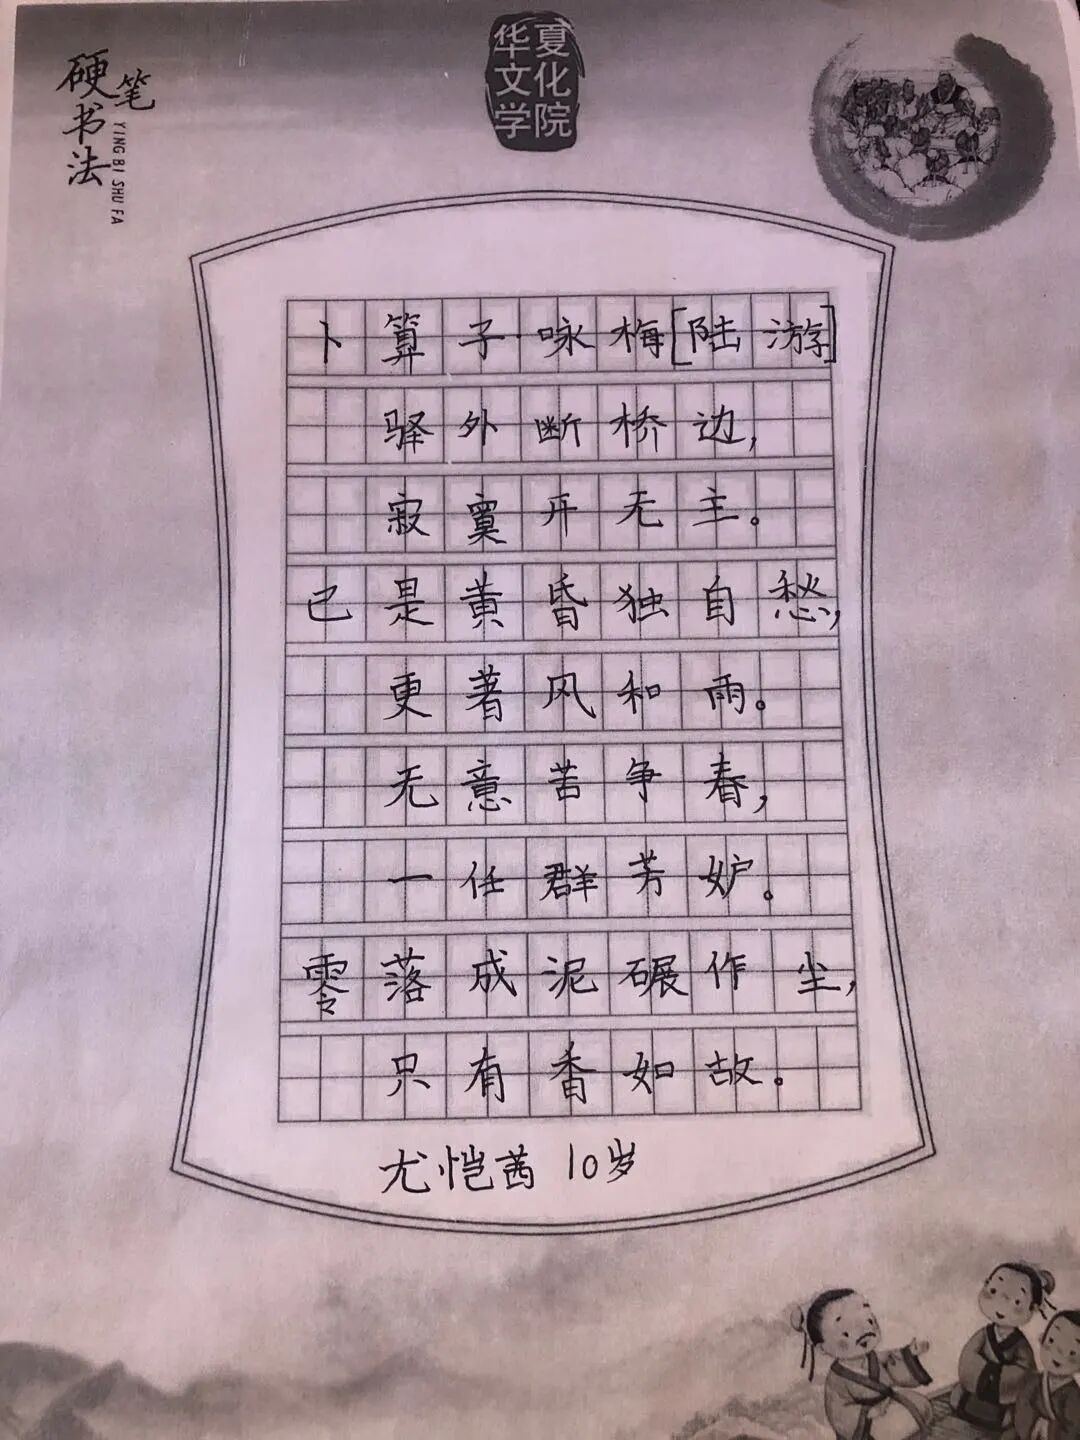 华夏
文化
学院
硬笔
书法
YING BI SHU FA
卜算子·咏梅[陆游]
驿外断桥边,
寂寞开无主。
已是黄昏独自愁,
更著风和雨。
无意苦争春,
一任群芳妒。
零落成泥碾作尘,
只有香如故。
尤恺茜 10岁